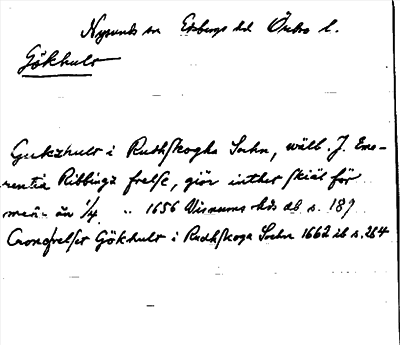 Nysunds sn Edsbergs hd Örebro l.
Gökhult
Gukzhult i Rudhskogha Sochn, wälb. J. Eme-
rentia Ribbings frelse, giör inthet skiäl för
meer än 1/4 " 1656 Visnums hds db s. 189
Cronofrelset Gökhult i Rudhskoga Sochn 1662 db s. 264